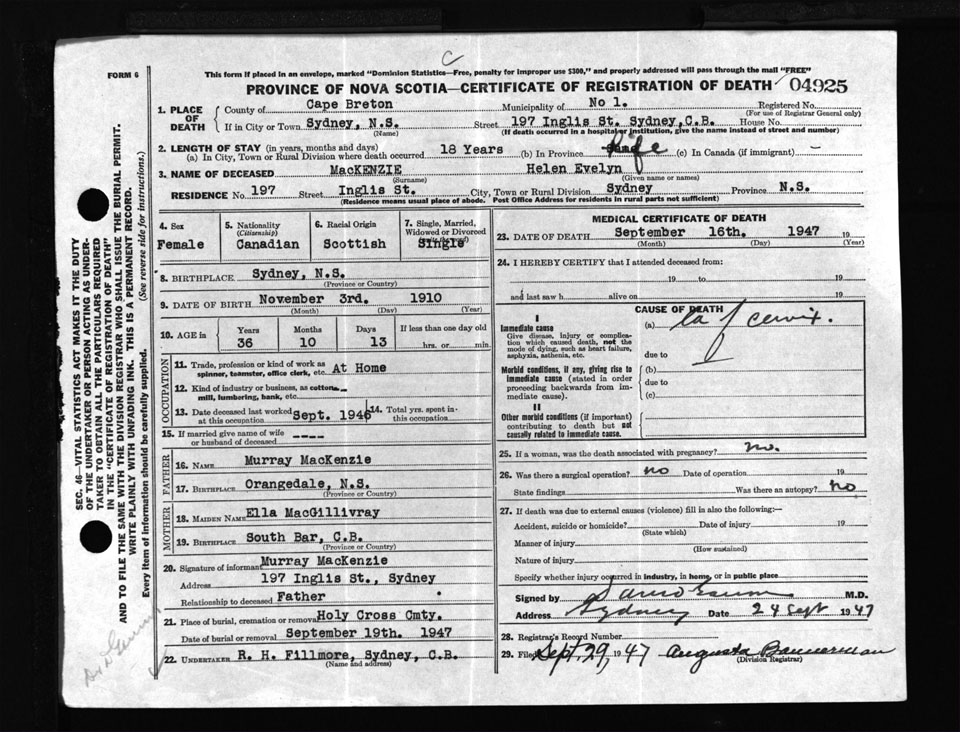 C
FORM 6
This form if placed in an envelope, marked "Dominion Statistics—Free, penalty for improper use $300," and properly addressed will pass through the mail "FREE"
PROVINCE OF NOVA SCOTIA—CERTIFICATE OF REGISTRATION OF DEATH 04925
1. PLACE OF DEATH
County of Cape Breton Municipality of No 1. Registered No.
(For use of Registrar General only)
If in City or Town Sydney, N.S. Street 197 Inglis St. Sydney, C.B. House No.
(Name) (If death occurred in a hospital or institution, give the name instead of street and number)
2. LENGTH OF STAY (in years, months and days)
(a) In City, Town or Rural Division where death occurred 18 Years (b) In Province life (c) In Canada (if immigrant) —
3. NAME OF DECEASED MacKENZIE Helen Evelyn
(Surname) (Given name or names)
RESIDENCE No. 197 Street Inglis St. City, Town or Rural Division Sydney Province N.S.
(Residence means usual place of abode. Post Office Address for residents in rural parts not sufficient)
4. Sex Female
5. Nationality (Citizenship) Canadian
6. Racial Origin Scottish
7. Single, Married, Widowed or Divorced Single
8. BIRTHPLACE Sydney, N.S.
(Province or Country)
9. DATE OF BIRTH November 3rd. 1910
(Month) (Day) (Year)
10. AGE in Years Months Days If less than one day old
36 10 13 hrs. or min.
OCCUPATION
11. Trade, profession or kind of work as spinner, teamster, office clerk, etc. At Home
12. Kind of industry or business, as cotton mill, lumbering, bank, etc.
13. Date deceased last worked at this occupation Sept. 1946
14. Total yrs. spent in this occupation
15. If married give name of wife or husband of deceased ----
FATHER
16. NAME Murray MacKenzie
17. BIRTHPLACE Orangedale, N.S.
(Province or Country)
MOTHER
18. MAIDEN NAME Ella MacGillivray
19. BIRTHPLACE South Bar, C.B.
(Province or Country)
20. Signature of informant Murray MacKenzie
Address 197 Inglis St., Sydney
Relationship to deceased Father
21. Place of burial, cremation or removal Holy Cross Cmty.
Date of burial or removal September 19th. 1947
22. UNDERTAKER R. H. Fillmore, Sydney, C.B.
(Name and address)
MEDICAL CERTIFICATE OF DEATH
23. DATE OF DEATH September 16th. 1947 19
(Month) (Day) (Year)
24. I HEREBY CERTIFY that I attended deceased from:
19 to 19
and last saw h alive on 19
CAUSE OF DEATH
I
Immediate cause
Give disease, injury or complication which caused death, not the mode of dying, such as heart failure, asphyxia, asthenia, etc.
(a) Ca of cervix.
due to
Morbid conditions, if any, giving rise to immediate cause (stated in order proceeding backwards from immediate cause).
(b)
due to
(c)
II
Other morbid conditions (if important) contributing to death but not causally related to immediate cause.
25. If a woman, was the death associated with pregnancy? no.
26. Was there a surgical operation? no Date of operation 19
State findings Was there an autopsy? no
27. If death was due to external causes (violence) fill in also the following:—
Accident, suicide or homicide? Date of injury 19
(State which)
Manner of injury
(How sustained)
Nature of injury
Specify whether injury occurred in industry, in home, or in public place
Signed by M.D.
Address Sydney Date 24 Sept 1947
28. Registrar's Record Number
29. Filed Sept. 29, 1947 Augusta Bannerman
(Division Registrar)
SEC. 46—VITAL STATISTICS ACT MAKES IT THE DUTY
OF THE UNDERTAKER OR PERSON ACTING AS UNDER-
TAKER TO OBTAIN ALL THE PARTICULARS REQUIRED
IN THE "CERTIFICATE OF REGISTRATION OF DEATH"
AND TO FILE THE SAME WITH THE DIVISION REGISTRAR WHO SHALL ISSUE THE BURIAL PERMIT.
WRITE PLAINLY WITH UNFADING INK. THIS IS A PERMANENT RECORD.
Every item of information should be carefully supplied. (See reverse side for instructions.)